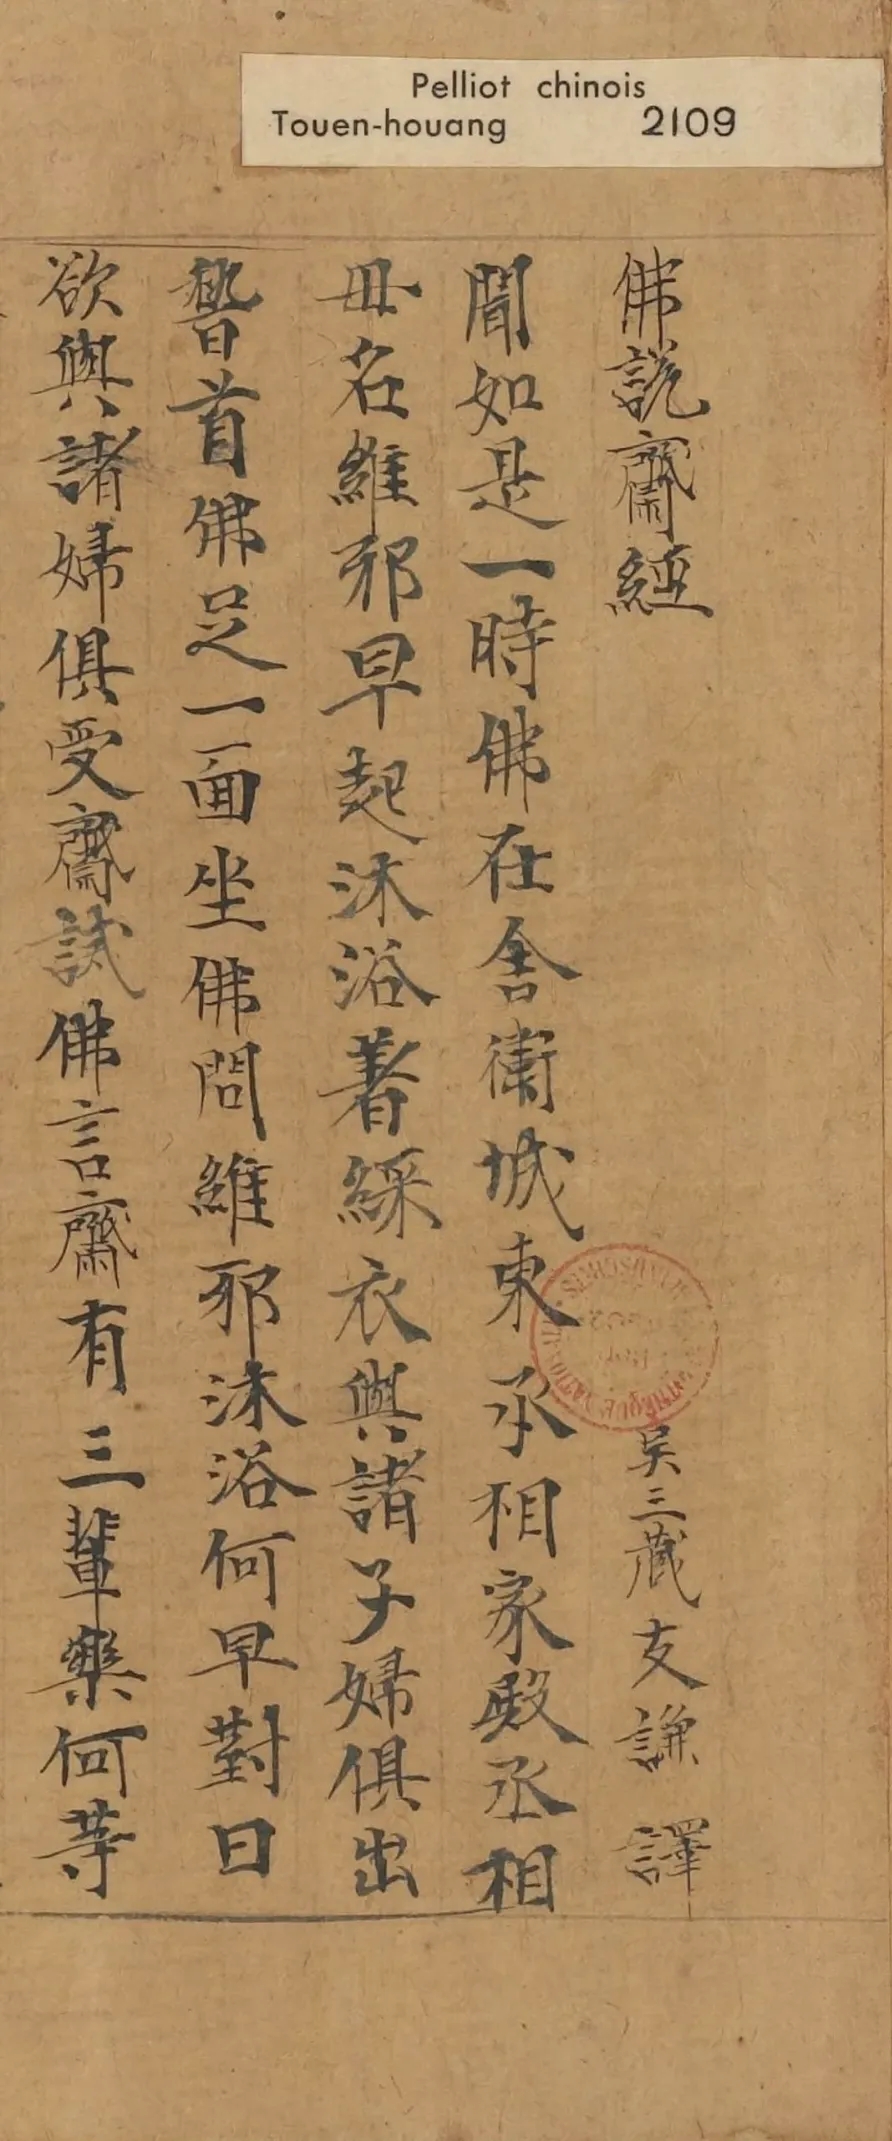 Pelliot chinois
Touen-houang 2109
佛說齋經 吳三藏支謙譯
聞如是一時佛在舍衛城東承相家殿丞相
毋名維邪早起沐浴著綵衣與諸子婦俱出
稽首佛足一面坐佛問維邪沐浴何早對曰
欲與諸婦俱受齋試佛言齋有三輩樂何等